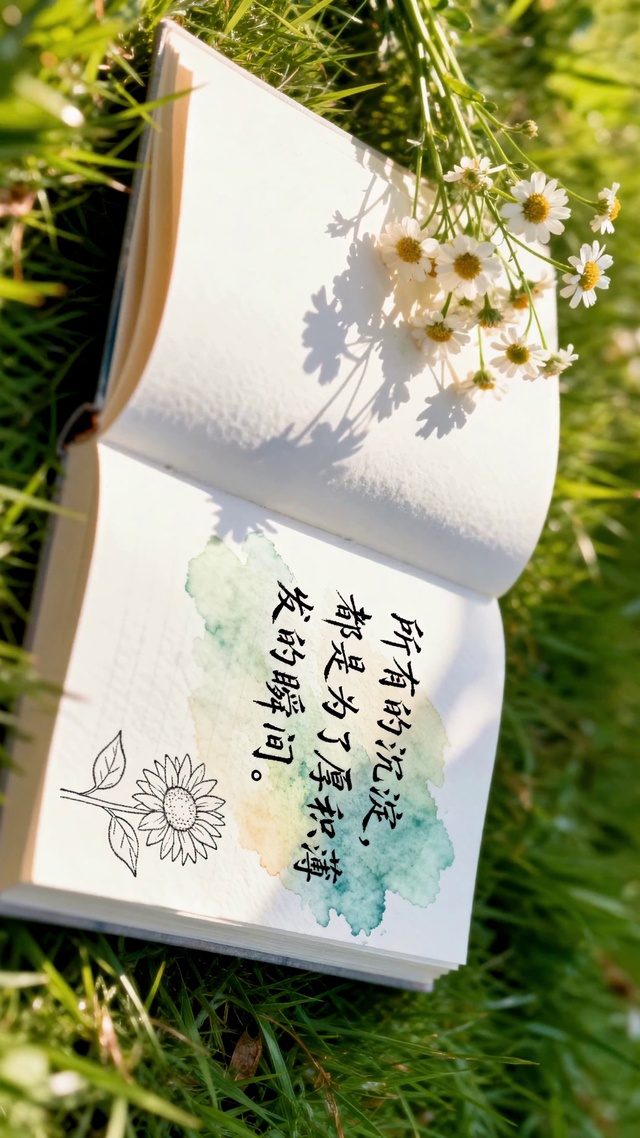 所有的沉淀，
都是为了厚积薄
发的瞬间。